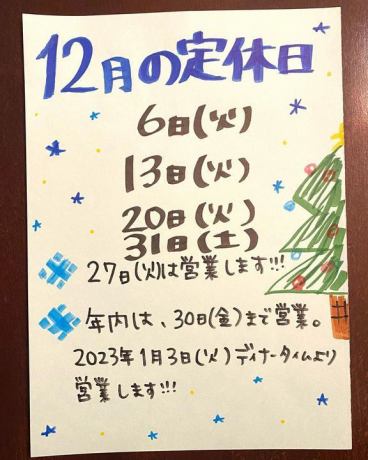 12月の定休日
6日(火)
13日(火)
20日(火)
31日(土)
27日(火)は営業します!!!
年内は、30日(金)まで営業。
2023年1月3日(火)ディナータイムより
営業します!!!